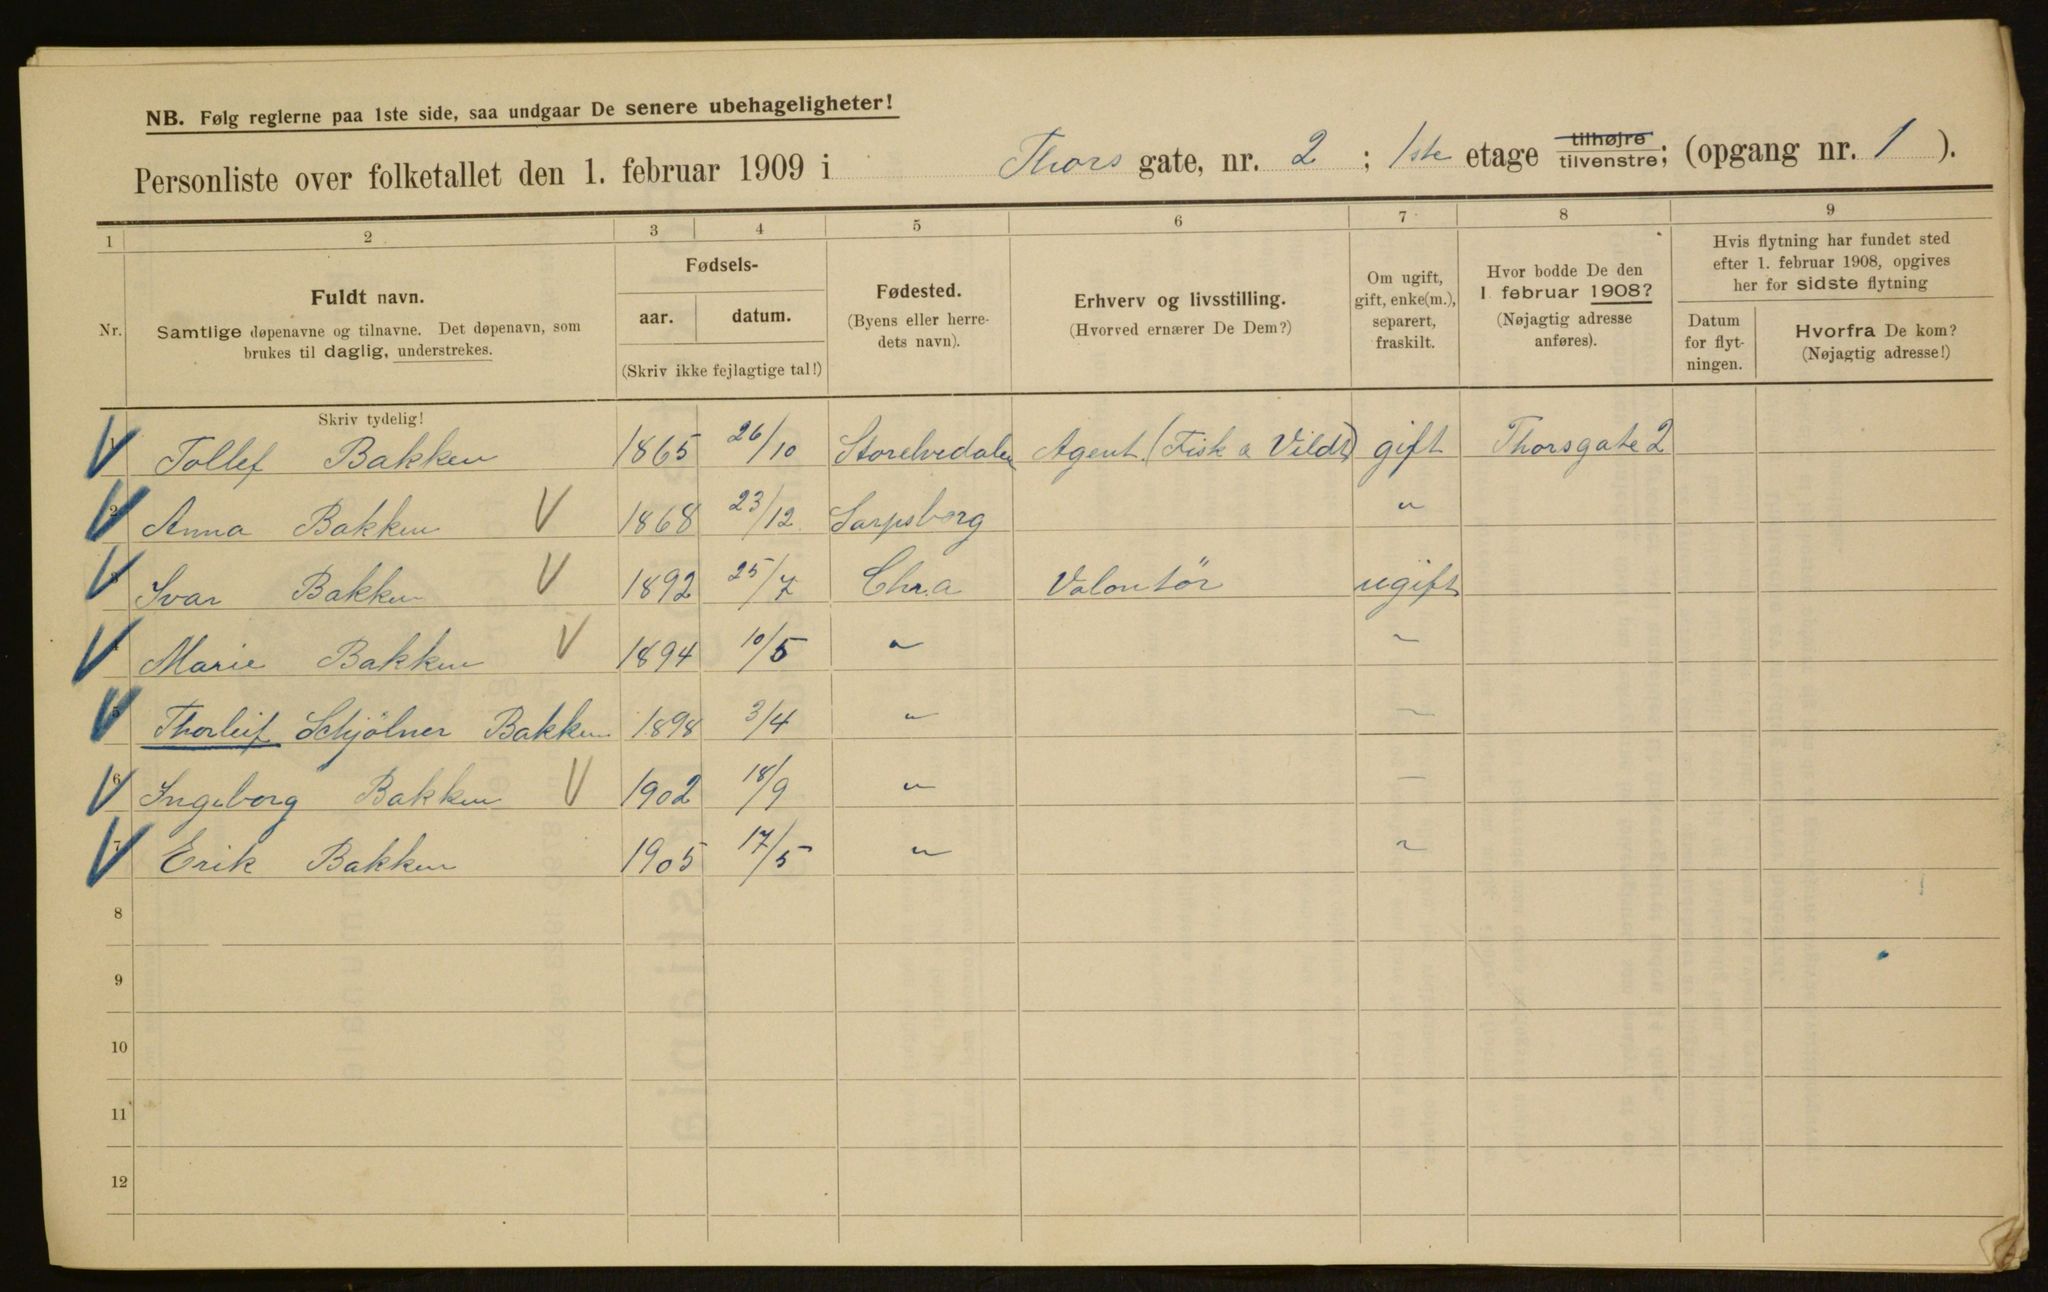 NB. Følg reglerne paa 1ste side, saa undgaar De senere ubehageligheter!
Personliste over folketallet den 1. februar 1909 i Thors gate, nr. 2 ; 1ste etage tilhøjre tilvenstre; (opgang nr. 1 ).
1 2 3 4 5 6 7 8 9
Nr.
Fuldt navn.
Samtlige døpenavne og tilnavne. Det døpenavn, som
brukes til daglig, understrekes.
Fødsels-
aar. datum.
(Skriv ikke fejlagtige tal!)
Fødested.
(Byens eller herre-
dets navn).
Erhverv og livsstilling.
(Hvorved ernærer De Dem?)
Om ugift,
gift, enke(m.),
separert,
fraskilt.
Hvor bodde De den
1 februar 1908?
(Nøjagtig adresse
anføres).
Hvis flytning har fundet sted
efter 1. februar 1908, opgives
her for sidste flytning
Datum
for flyt-
ningen.
Hvorfra De kom?
(Nøjagtig adresse!)
Skriv tydelig!
1 Tollef Bakken 1865 26/10 Storelvedalen Agent (Fisk & Vildt) gift Thorsgate 2
2 Anna Bakken V 1868 23/12 Sarpsborg "
3 Ivar Bakken V 1892 25/7 Chr.a Volontør ugift
4 Marie Bakken V 1894 10/5 " "
5 Thorleif Schjölner Bakken 1898 3/4 " "
6 Ingeborg Bakken V 1902 18/9 " "
7 Erik Bakken 1905 17/5 " "
8
9
10
11
12